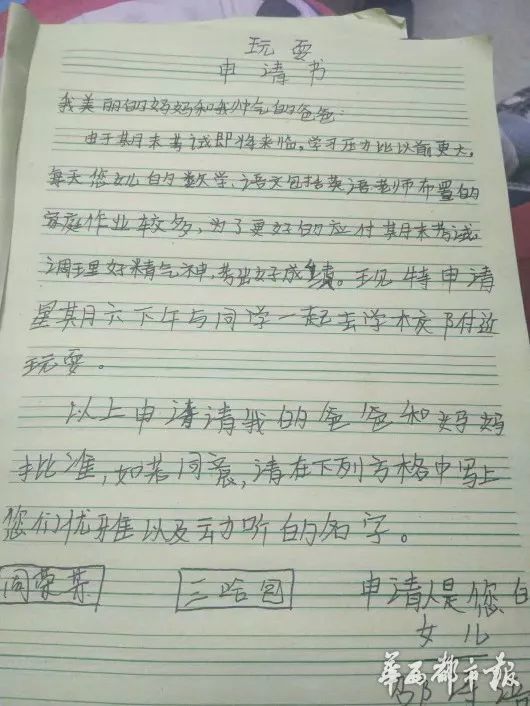 玩耍
申请书
我美丽的妈妈和我帅气的爸爸:
由于期末考试即将来临,学习压力比以前更大,
每天您女儿的数学、语文包括英语老师布置的
家庭作业较多,为了更好的应付期末考试,
调理好精气神,考出好成绩。现特申请
星期六下午与同学一起去学校附近
玩耍。
以上申请请我的爸爸和妈妈
批准,如若同意,请在下列方格中写上
您们优雅以及动听的名字。
三哈包 申请人是您白
女儿
华西都市报